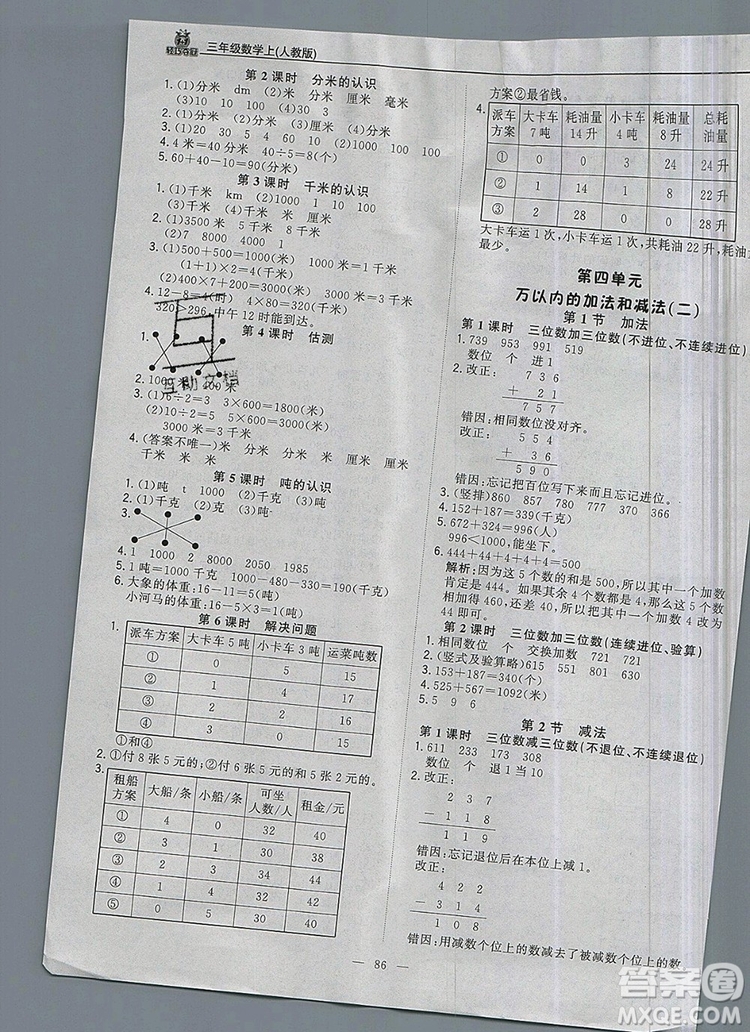 轻巧夺冠
三年级数学上(人教版)
第2课时 分米的认识
1. (1)分米 dm (2)米 分米 厘米 毫米
(3)10 10 100 (4)10 30 3
2. (1)分米 (2)厘米
3. (1)20 30 5 4 60 (2)1000 100 100
4. 4米=40分米 40÷5=8(个)
5. 60+40-10=90(厘米)
第3课时 千米的认识
1. (1)千米 km (2)1000 1 10 100
(3)千米 (4)米 千米 厘米 千米
2. (1)3000 5 9000 6 8
(2)7 8000 4000 1
3. (1)500+500=1000(米) 1000米=1千米
(1+1)×2=4(千米)
(2)400×7+200=3000(米)
3000米=3千米
4. 12-8=4(时) 4×80=320(千米)
320>296,中午12时能到达。
第4课时 估测
1.
2. 1000米 100米
3. (1)6÷2=3 3×600=1800(米)
(2)10÷2=5 5×600=3000(米)
3000米=3千米
4. (答案不唯一)米 分米 分米 厘米 厘米
千米 米 米
第5课时 吨的认识
1. (1)吨 t 1000 (2)千克 (3)吨
2. (1)千克 (2)千克 (3)吨
3.
4. 1 1000 2 8000 2050 1985
5. 1吨=1000千克 1000÷5=200(千克)
6. 大象的体重:16-11=5(吨)
小河马的体重:16-5-8=3(吨)
第6课时 解决问题
1.
派车方案 大卡车5吨 小卡车3吨 运菜吨数
① 0 5 15
② 1 4 17
③ 2 2 16
④ 3 0 15
①和④
2. ①付8张5元的;②付6张5元的和5张2元的。
3.
租船方案 大船/条 小船/条 可坐人数/人 租金/元
① 4 0 32 40
40
44
40
⑤ 0 8 32 48
方案②最省钱。
4.
派车方案 大卡车7吨 耗油量14升 小卡车4吨 耗油量8升 总耗油量
① 0 0 3 24 24升
② 1 14 1 8 22升
③ 2 28 0 0 28升
大卡车运1次,小卡车运1次,共耗油22升,耗油
最少。
第四单元
万以内的加法和减法(二)
第1节 加法
第1课时 三位数加三位数(不进位、不连续进位)
1. 739 953 991 519
数位 个 进1
2. 改正:
7 3 6
+ 2 1
7 5 7
错因:相同数位没对齐。
改正:
5 5 4
+ 3 6
5 9 0
错因:忘记把百位写下来而且忘记进位。
3. (竖排)960 627 850 777 370 366
4. 152+187=339(千克)
5. 672+324=996(人)
996<1000,能坐下。
6. 444+44+4+4+4=500
解析:因为这5个数的和是500,所以其中一个加数
44即可。
第2课时 三位数加三位数(连续进位、验算)
1. 相同数位 个 交换加数 721 721
2. (竖式及验算略)615 551 801 630
3. 152+187=339(元)
4. 525+567=1092(米)
5. 5 9 6
第2节 减法
第1课时 三位数减三位数(不退位、不连续退位)
1. 611 233 173 308
数位 个 退1当10
2. 改正:
2 3 7
- 1 1 8
1 1 9
错因:忘记退位后在本位上减1。
改正:
4 2 2
- 3 1 4
1 0 8
错因:用减数个位上的数减去了被减数个位上的数。
— 86 —
互助文档
答案圈
MXQE.COM